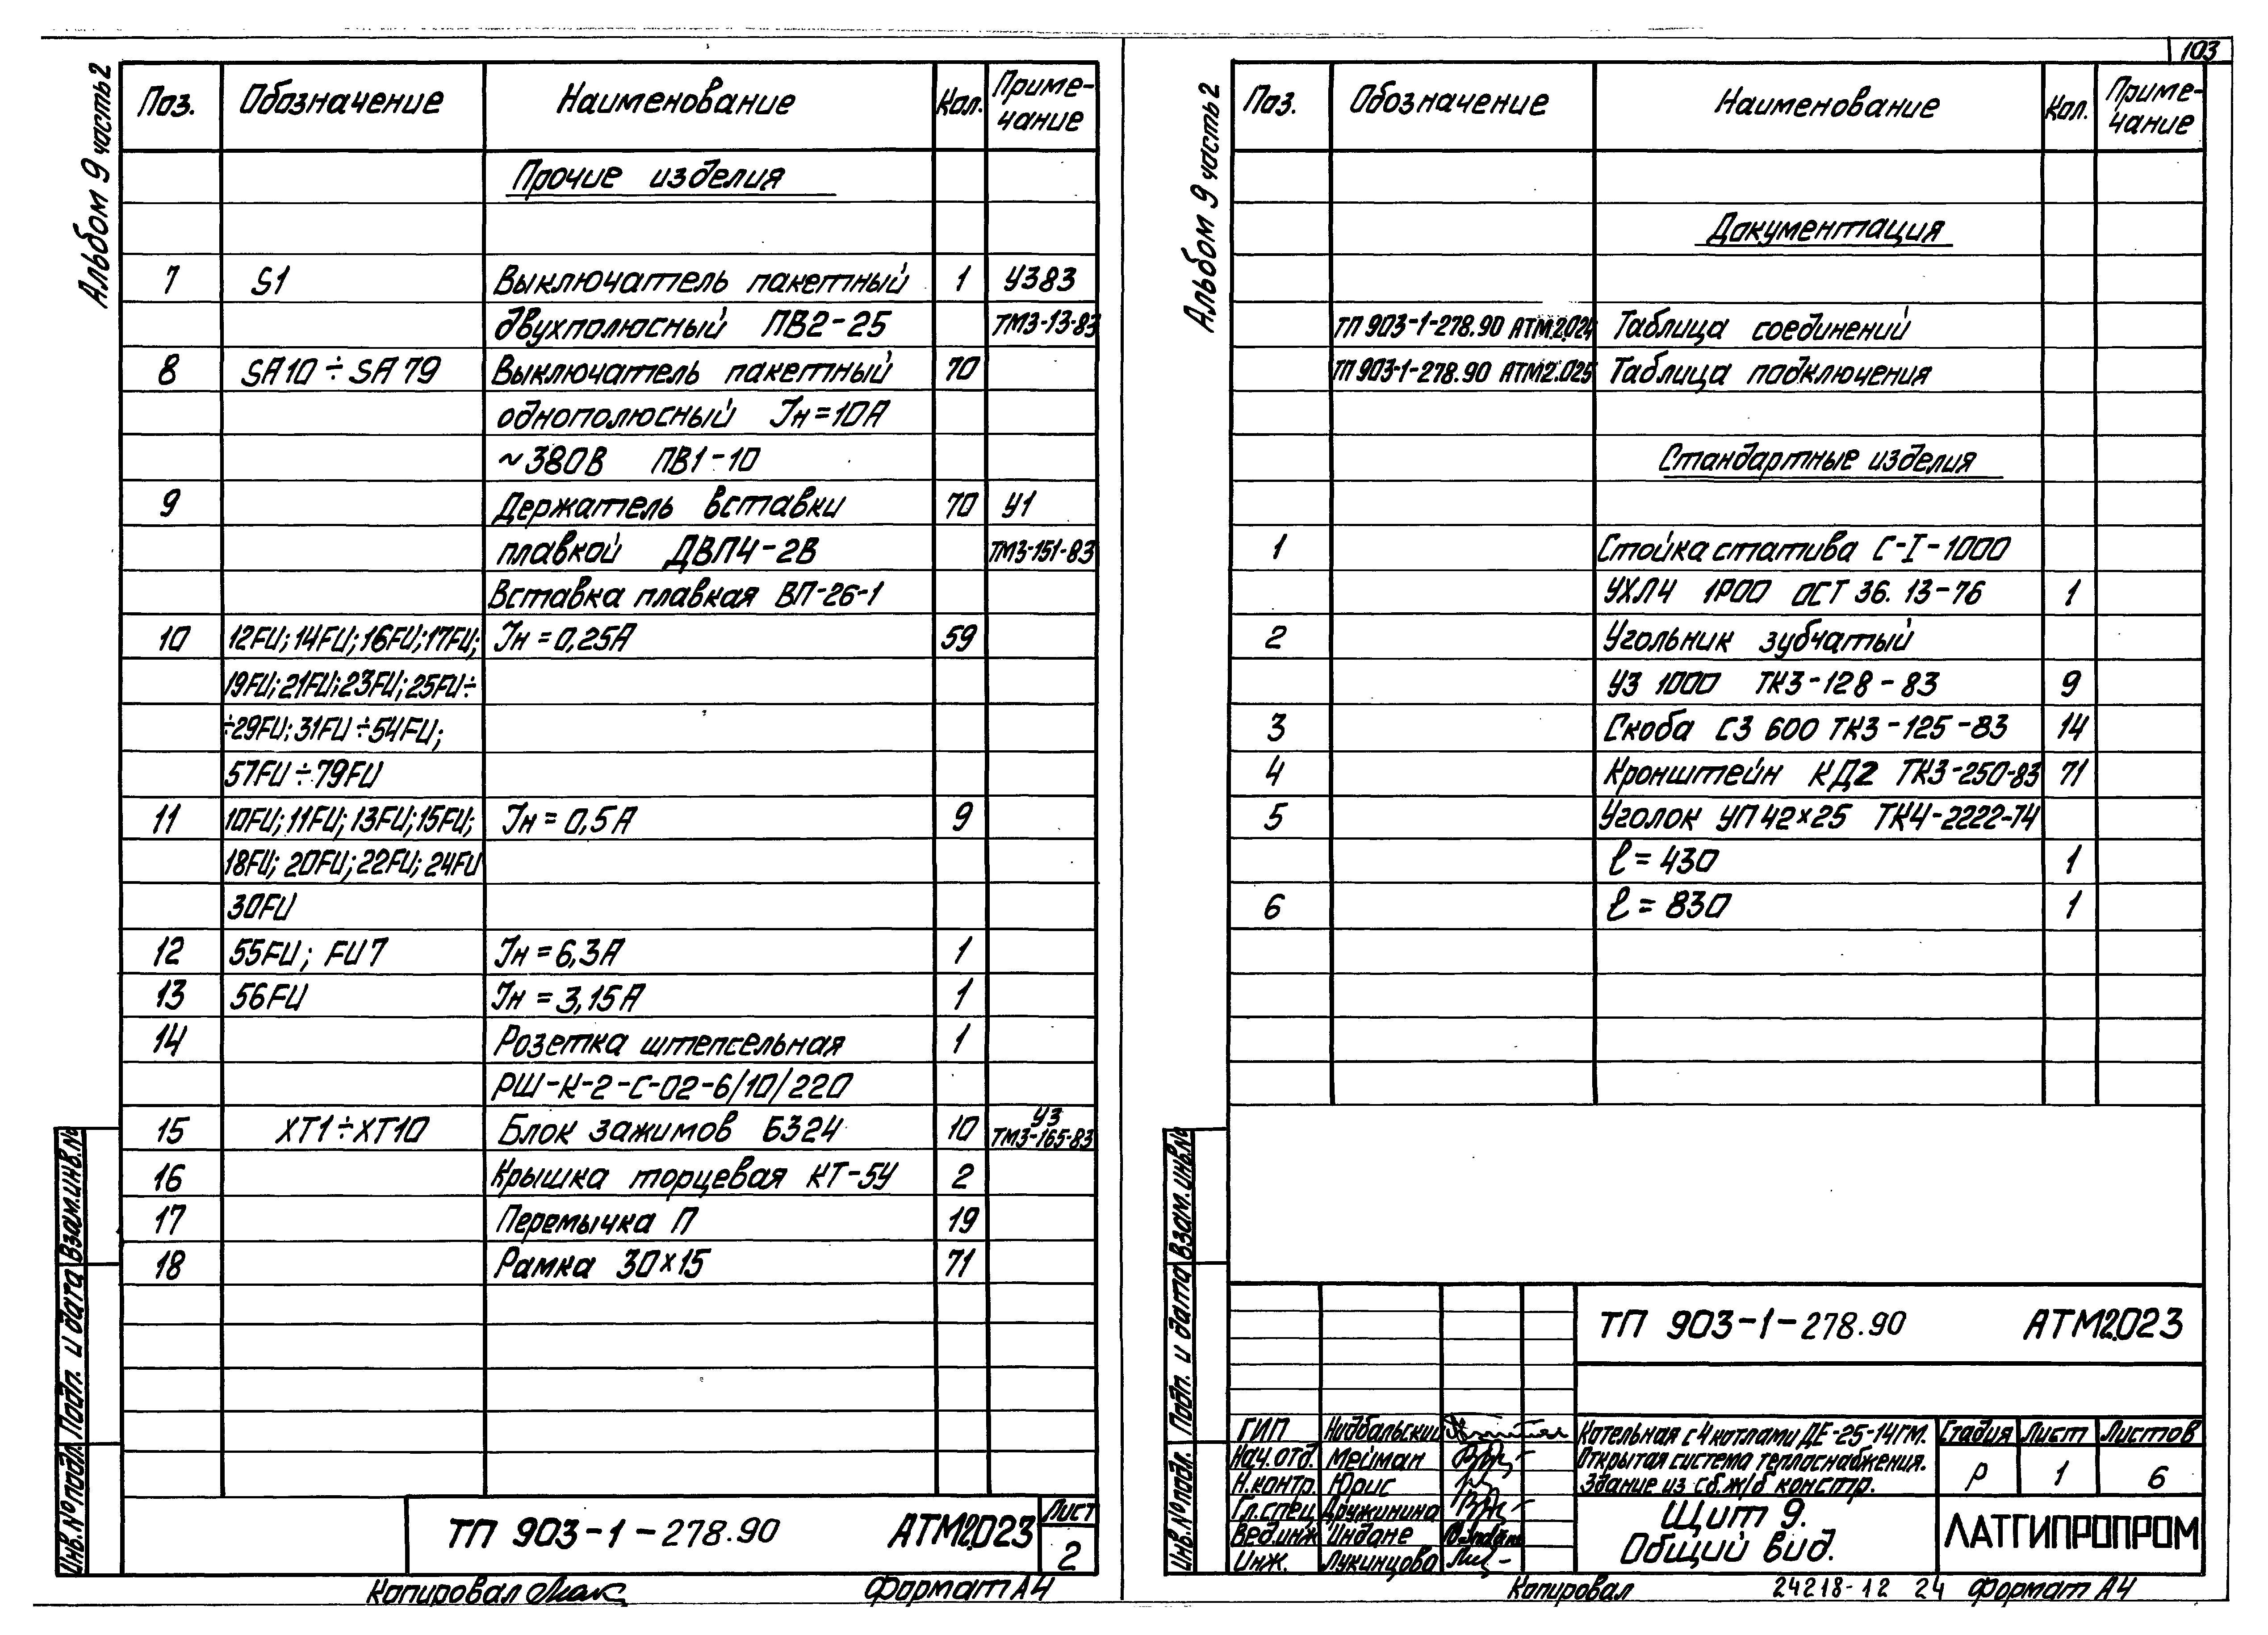 103
Альбом 9 часть 2
Поз. Обозначение Наименование Кол. Приме-
чание
Прочие изделия
7 S1 Выключатель пакетный 1 У383
двухполюсный ПВ2-25 ТМ3-13-83
8 SA10÷SA79 Выключатель пакетный 70
однополюсный Iн=10А
~380В ПВ1-10
9 Держатель вставки 70 У1
плавкой ДВП4-2В ТМ3-151-83
Вставка плавкая ВП-26-1
10 12FU; 14FU; 16FU; 17FU; Iн=0,25А 59
19FU; 21FU; 23FU; 25FU÷
÷29FU; 31FU÷54FU;
57FU÷79FU
11 10FU; 11FU; 13FU; 15FU; Iн=0,5А 9
18FU; 20FU; 22FU; 24FU
30FU
12 55FU; FU7 Iн=6,3А 1
13 56FU Iн=3,15А 1
14 Розетка штепсельная 1
РШ-К-2-С-02-6/10/220
15 XT1÷XT10 Блок зажимов Б324 10 У3
ТМ3-165-83
16 Крышка торцевая КТ-5У 2
17 Перемычка П 19
18 Рамка 30×15 71
Инв.№ подл. Подп. и дата Взам.инв.№
ТП 903-1-278.90 АТМ2.023 Лист
2
Копировал Формат А4
Альбом 9 часть 2
Поз. Обозначение Наименование Кол. Приме-
чание
Документация
ТП 903-1-278.90 АТМ2.024 Таблица соединений
ТП 903-1-278.90 АТМ2.025 Таблица подключения
Стандартные изделия
1 Стойка статива С-I-1000
УХЛ4 IP00 ОСТ 36.13-76 1
2 Угольник зубчатый
УЗ 1000 ТК3-128-83 9
3 Скоба СЗ 600 ТК3-125-83 14
4 Кронштейн КД2 ТК3-250-83 71
5 Уголок УП42×25 ТК4-2222-74
ℓ=430 1
6 ℓ=830 1
Инв.№ подл. Подп. и дата Взам.инв.№
ТП 903-1-278.90 АТМ2.023
ГИП Нидбальский
Нач.отд. Мейман
Н.контр. Юрис
Гл.спец. Дружинина
Вед.инж. Индане
Инж. Лукинцова
Котельная с 4 котлами ДЕ-25-14ГМ.
Открытая система теплоснабжения.
Здание из сб.ж/б констр.
Стадия Лист Листов
Р 1 6
Щит 9.
Общий вид.
ЛАТГИПРОПРОМ
Копировал 24218-12 24 Формат А4